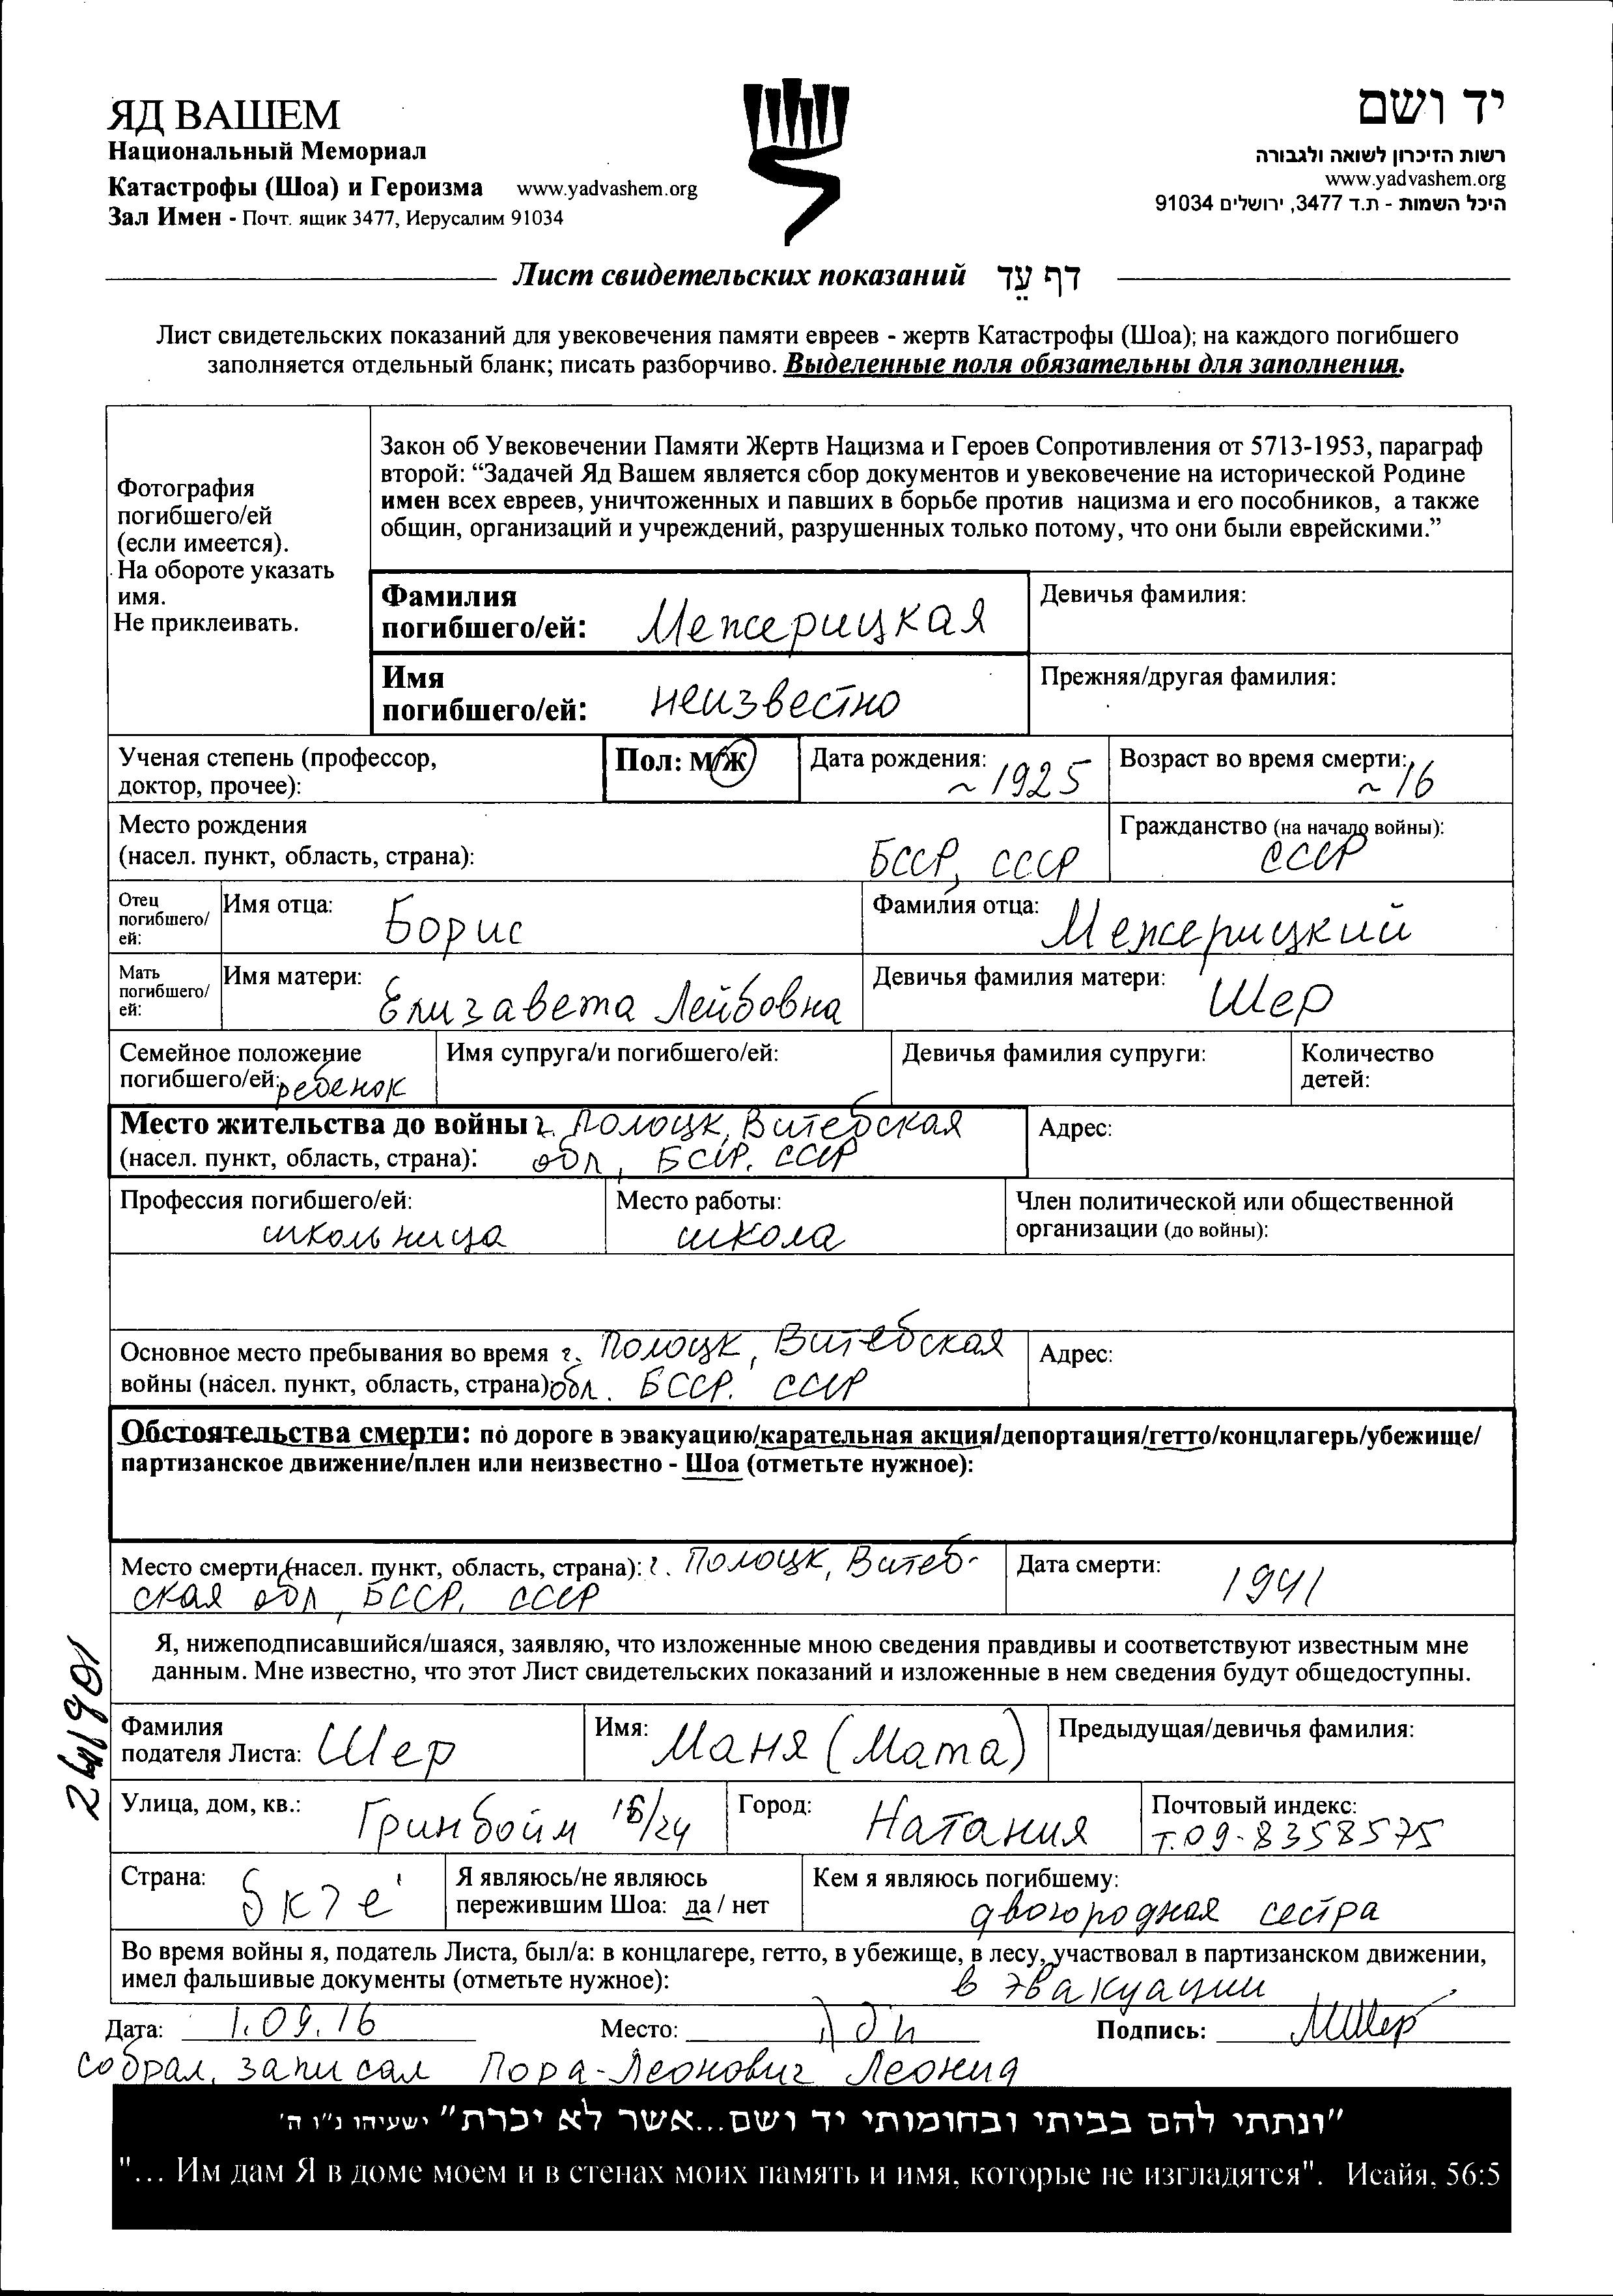 ЯД ВАШЕМ
Национальный Мемориал
Катастрофы (Шоа) и Героизма www.yadvashem.org
Зал Имен - Почт. ящик 3477, Иерусалим 91034
יד ושם
רשות הזיכרון לשואה ולגבורה
www.yadvashem.org
היכל השמות - ת.ד 3477, ירושלים 91034
Лист свидетельских показаний דף עֵד
Лист свидетельских показаний для увековечения памяти евреев - жертв Катастрофы (Шоа); на каждого погибшего
заполняется отдельный бланк; писать разборчиво. Выделенные поля обязательны для заполнения.
Фотография
погибшего/ей
(если имеется).
На обороте указать
имя.
Не приклеивать.
Закон об Увековечении Памяти Жертв Нацизма и Героев Сопротивления от 5713-1953, параграф
второй: “Задачей Яд Вашем является сбор документов и увековечение на исторической Родине
имен всех евреев, уничтоженных и павших в борьбе против нацизма и его пособников, а также
общин, организаций и учреждений, разрушенных только потому, что они были еврейскими.”
Фамилия
погибшего/ей: Межерицкая
Девичья фамилия:
Имя
погибшего/ей: неизвестно
Прежняя/другая фамилия:
Ученая степень (профессор,
доктор, прочее):
Пол: М/Ж
Дата рождения: ~ 1925
Возраст во время смерти: ~ 16
Место рождения
(насел. пункт, область, страна): БССР, СССР
Гражданство (на начало войны):
СССР
Отец
погибшего/
ей:
Имя отца: Борис
Фамилия отца: Межерицкий
Мать
погибшего/
ей:
Имя матери: Елизавета Лейбовна
Девичья фамилия матери: Шер
Семейное положение
погибшего/ей: ребенок
Имя супруга/и погибшего/ей:
Девичья фамилия супруги:
Количество
детей:
Место жительства до войны г. Полоцк, Витебская
(насел. пункт, область, страна): обл, БССР. СССР
Адрес:
Профессия погибшего/ей:
школьница
Место работы:
школа
Член политической или общественной
организации (до войны):
Основное место пребывания во время г. Полоцк, Витебская
войны (насел. пункт, область, страна) обл. БССР. СССР
Адрес:
Обстоятельства смерти: по дороге в эвакуацию/карательная акция/депортация/гетто/концлагерь/убежище/
партизанское движение/плен или неизвестно - Шоа (отметьте нужное):
Место смерти (насел. пункт, область, страна): г. Полоцк, Витеб-
ская обл, БССР. СССР
Дата смерти: 1941
Я, нижеподписавшийся/шаяся, заявляю, что изложенные мною сведения правдивы и соответствуют известным мне
данным. Мне известно, что этот Лист свидетельских показаний и изложенные в нем сведения будут общедоступны.
Фамилия
подателя Листа: Шер
Имя: Маня (Мата)
Предыдущая/девичья фамилия:
Улица, дом, кв.: Гринбойм 16/24
Город: Натания
Почтовый индекс:
т. 09-8358575
Страна:
Я являюсь/не являюсь
пережившим Шоа: да / нет
Кем я являюсь погибшему:
двоюродная сестра
Во время войны я, податель Листа, был/а: в концлагере, гетто, в убежище, в лесу, участвовал в партизанском движении,
имел фальшивые документы (отметьте нужное): в эвакуации
Дата: 1.09.16 Место: Подпись: МШер
собрал, записал Пора-Леонович Леонид
"ונתתי להם בביתי ובחומותי יד ושם...אשר לא יכרת" ישעיהו נ"ו ה'
"... Им дам Я в доме моем и в стенах моих память и имя, которые не изгладятся". Исайя, 56:5